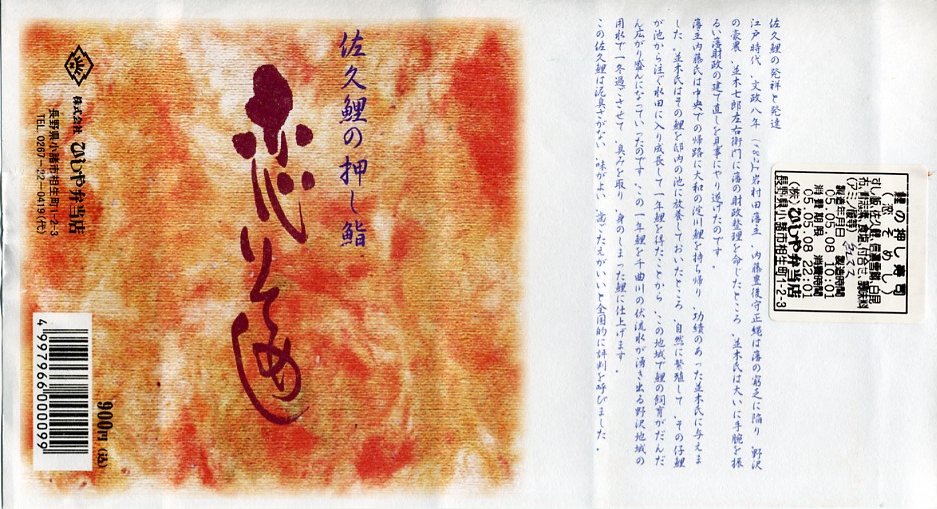 佐久鯉の発祥と発達
江戸時代、文政八年(一八二五)岩村田藩主、内藤豊後守正縄は藩の窮乏に陥り、野沢
の豪農、並木七郎左右衛門に藩の財政整理を命じたところ、並木氏は大いに手腕を振
るい藩財政の建て直しを見事にやり遂げたのです。
藩主内藤氏は中央での帰路に大和の淀川鯉を持ち帰り、功績のあった並木氏に与えま
した。並木氏はその鯉を邸内の池に放養しておいたところ、自然に繁殖して、その仔鯉
が池から注ぐ水田に入り成長して一年鯉を得たことから、この地域で鯉の飼育がだんだ
ん広がり盛んになっていったのです。この一年鯉を千曲川の伏流水が湧き出る野沢地域の
用水で一冬過ごさせて、臭みを取り、身のしまった鯉に仕上げます。
この佐久鯉は泥臭さがない、味がよい、歯ごたえがいいと全国的に評判を呼びました。
鯉の押し寿司
(恋そめし)
すし飯、佐久鯉、信濃雪鱒、白昆
布、食塩、付合せ、調味料
(アミノ酸等)
製造年月日 製造時間
05.05.08 10:01
消費期限 消費時間
05.05.08 22:01
(株)ひしや弁当店
長野県小諸市相生町1-2-3
佐久鯉の押し鮨
恋そめし
株式会社 ひしや弁当店
長野県小諸市相生町1-2-3
TEL. 0267-22-0419(代)
900円(込)
4997966000099